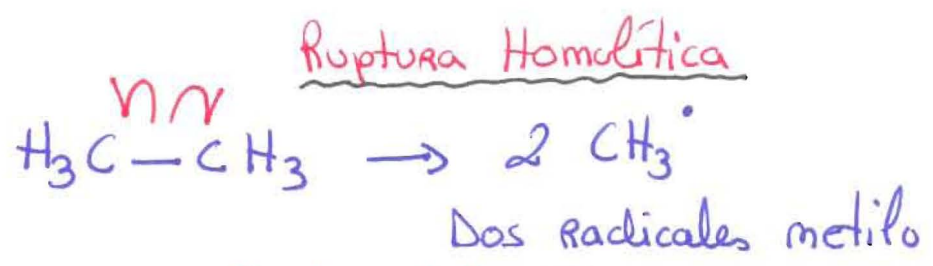 Ruptura Homolítica
H₃C—CH₃ → 2 CH₃•
Dos Radicales metilo